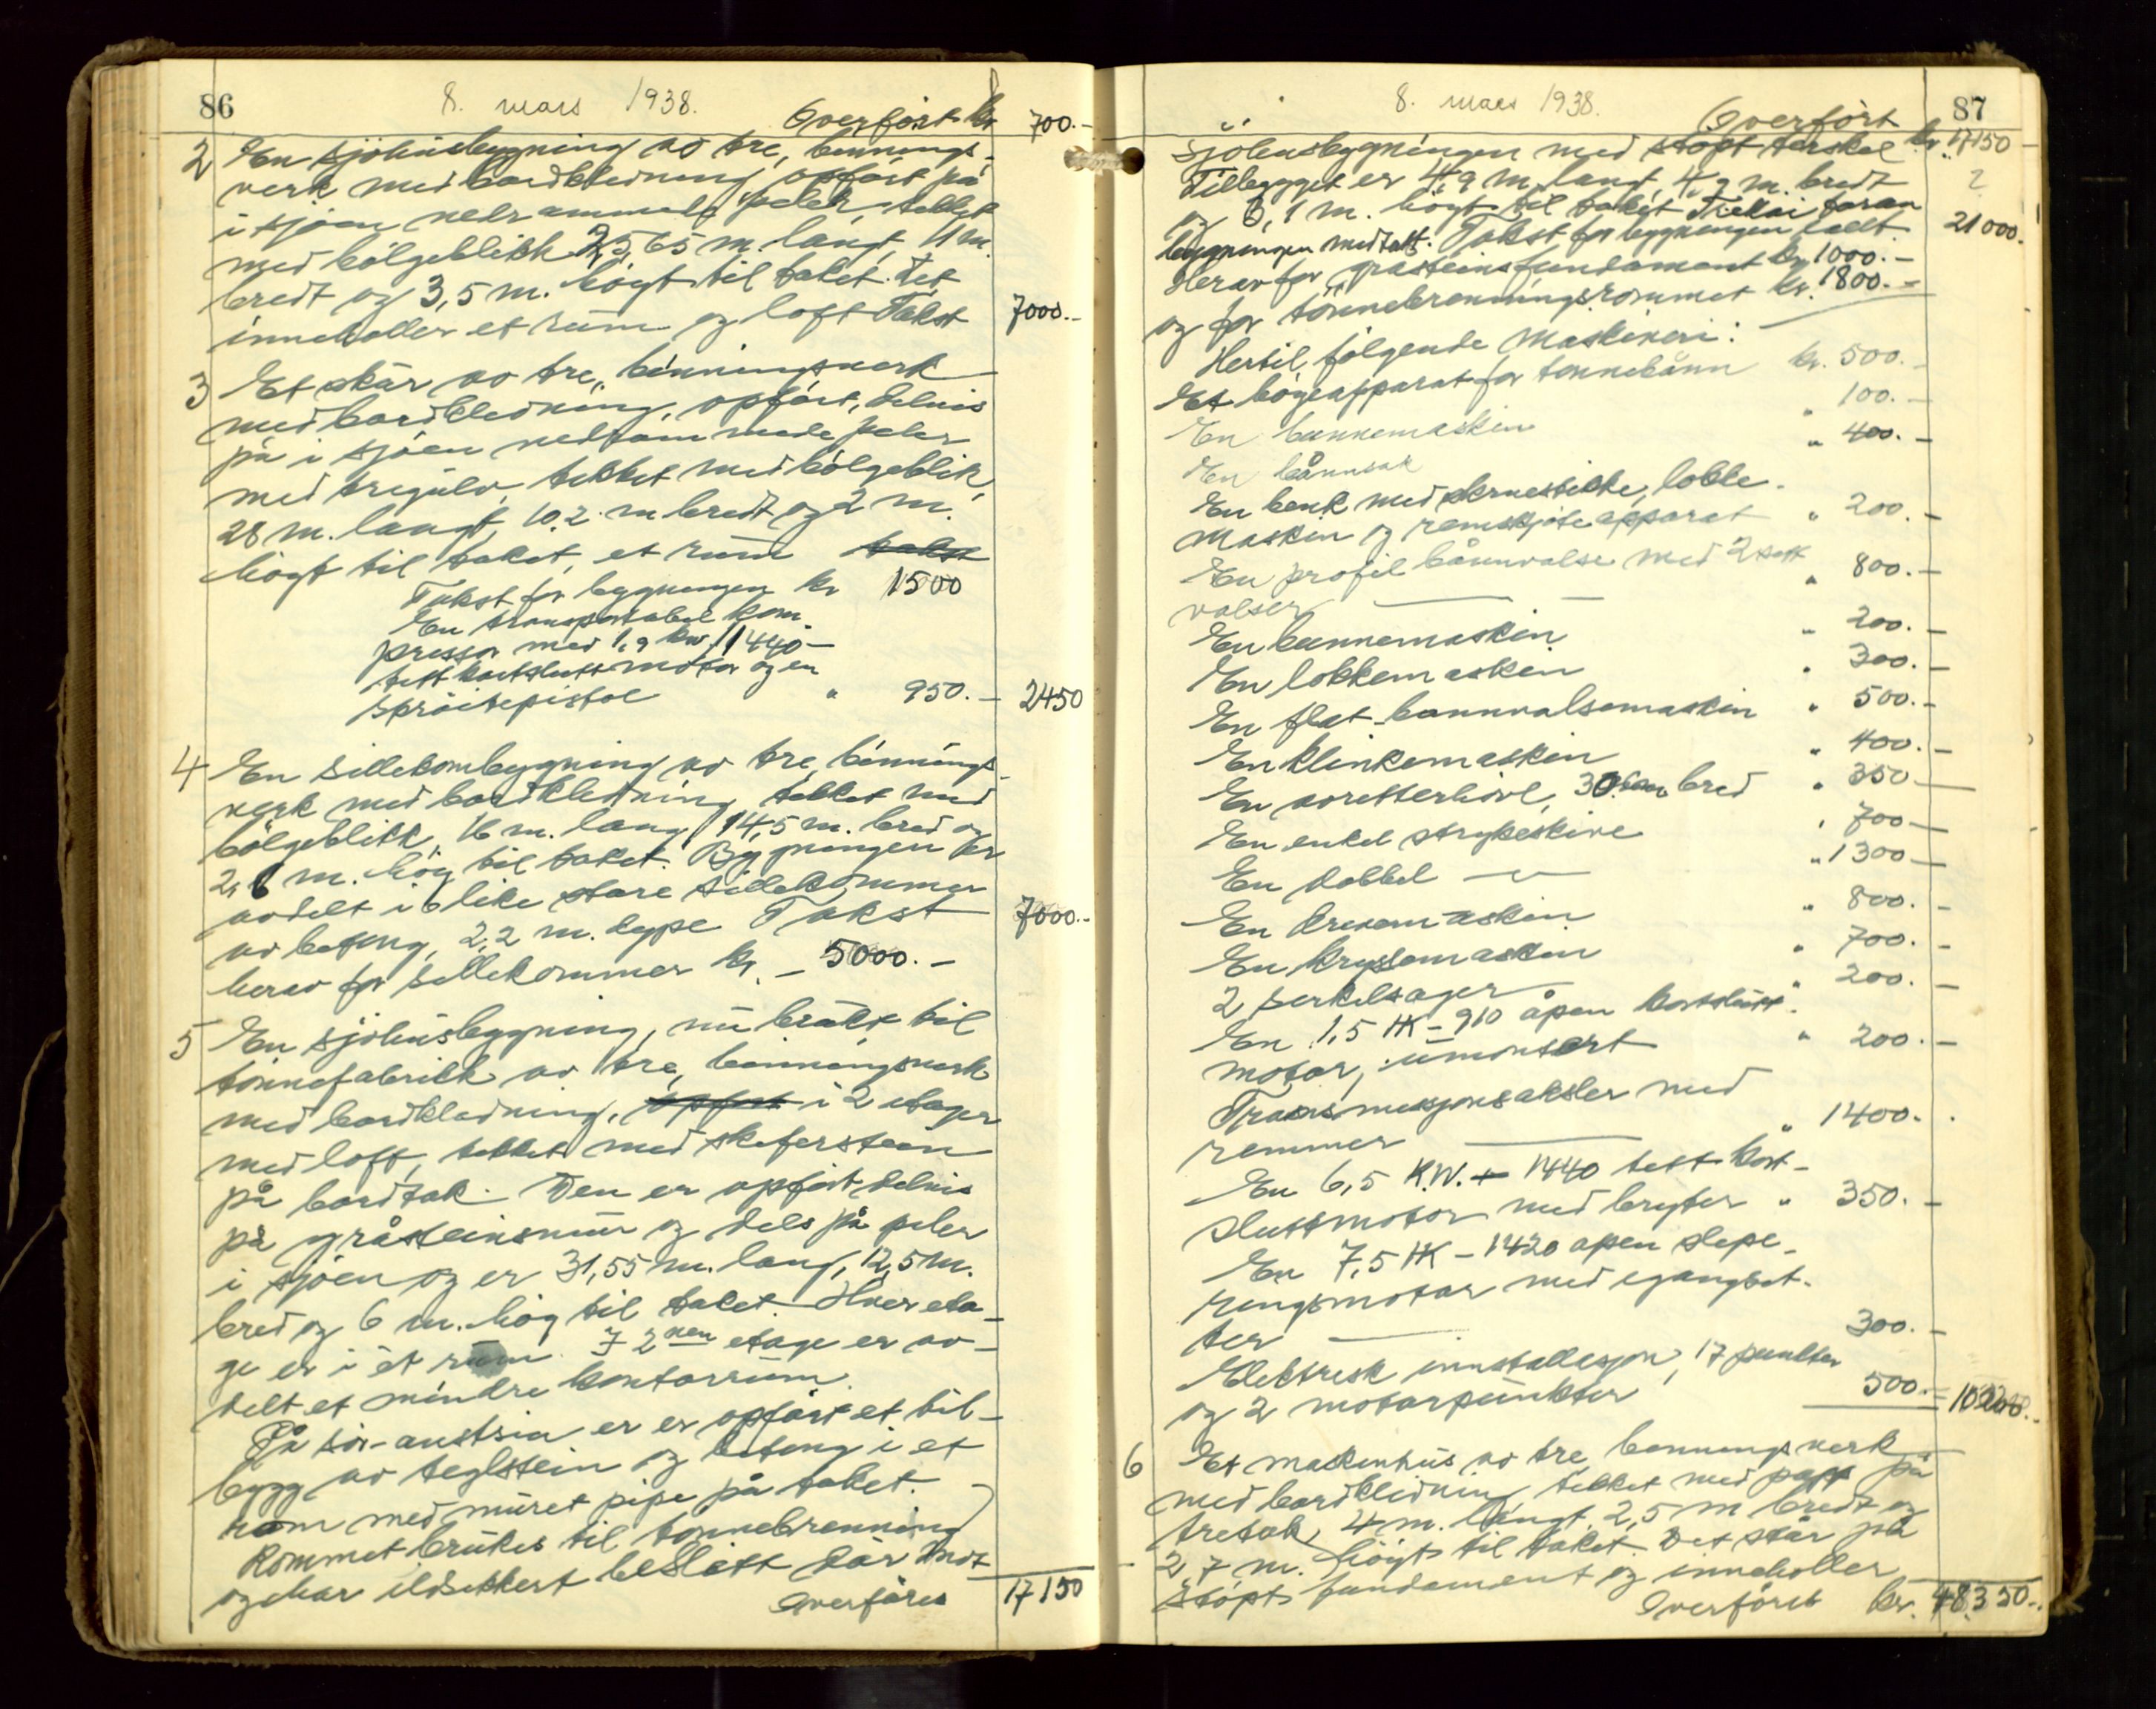 86
8. mars 1938.
Overført kr 700.-
2 En sjøhusbygning av tre, binnings-
verk med bordkledning, opført på
i sjøen nedrammede peler, tekket
med bølgeblikk 25,65 m. langt, 11 m.
bredt og 3,5 m. høgt til taket. Det
inneholler et rum og loft Takst 7000.-
3 Et skur av tre, binningsverk
med bordkledning, opført, delvis
på i sjøen nedrammede peler
med tregulv, tekket med bølgeblik,
28 m. langt, 10.2 m bredt og 2 m.
høgt til taket, et rum takst
Takst for bygningen kr 1500
En transportabel kom-
pressor med 1,9 kw 1440-
tett kortslutt motor og en
sprøitepistol " 950.- 2450
4 En sillebombygning av tre, binnings-
verk med bordkledning, tekket med
bølgeblikk, 16 m. lang, 14,5 m. bred og
2,6 m. høg til taket. Bygningen er
avdelt i 6 like store sillekommer
av betong, 2,2 m. dype Takst 7000.-
herav for sillekommer kr. - 5000.-
5 En sjøhusbygning, nu brukt til
tønnefabrikk av tre, binningsverk
med bordkledning, opført i 2 etager
med loft, tekket med skiferstein
på bordtak. Den er opført, delvis
på gråsteinsmur og dels på peler
i sjøen og er 31,55 m. lang, 12,5 m.
bred og 6 m. høg til taket. Hver eta-
ge er i et rum. I 2nen etage er av-
delt et mindre kontorrum.
På sør-austsia er er opført et til-
bygg av teglstein og betong i et
rom med muret pipe på taket.
Rommet brukes til tønnebrenning
og har ildsikkert beslått dør mot
Overføres 17150
87
8. mars 1938.
Overført
sjøhusbygningen med støpt terskel kr. 17150-
Tilbygget er 4,9 m. langt, 4,9 m. bredt
og 3,1 m. høgt til taket Trekai foran
bygningen medtatt. Takst for bygningen kallt 21000.
Herav for gråsteinsfundament kr 1000.-
og for tønnebrenningsrommet kr. 1800.-
Hertil følgende maskineri:
Et bøgeapparat for tønnebånn kr. 500.-
En bunnemaskin " 100.-
En bånnsak " 400.-
En benk med skruestikke, lokke-
maskin og remskjøteapparat " 200.-
En profil bånnvalse med 2 sett
valser " 800.-
En bunnemaskin " 200.-
En lokkemaskin " 300.-
En flat-bånnvalsemaskin " 500.-
En klinkemaskin " 400.-
En avretterhøvl, 30 cm bred " 350-
En enkel strykeskive " 700-
En dobbel -"- " 1300-
En drevemaskin " 800.-
En krysemaskin " 700.-
2 serkelsager " 200.-
En 1,5 HK - 910 åpen kortslutt-
motor, umontert " 200.-
Transmisjonsaksler med
remmer " 1400.-
En 6,5 K.W. + 1440 tett kort-
sluttmotor med bryter " 350.-
En 7,5 HK - 1420 åpen slepe-
ringsmotor med igangset-
ter 300.-
Elektrisk innstallasjon, 17 punkter
og 2 motorpunkter 500.- 10200.-
6 Et maskinhus av tre, binningsverk
med bordkledning tekket med papp på
tretak, 4 m. langt, 2,5 m bredt og
2,7 m. høigt til taket. Det står på
støpt fundament og inneholler
Overføres kr. 48350.-